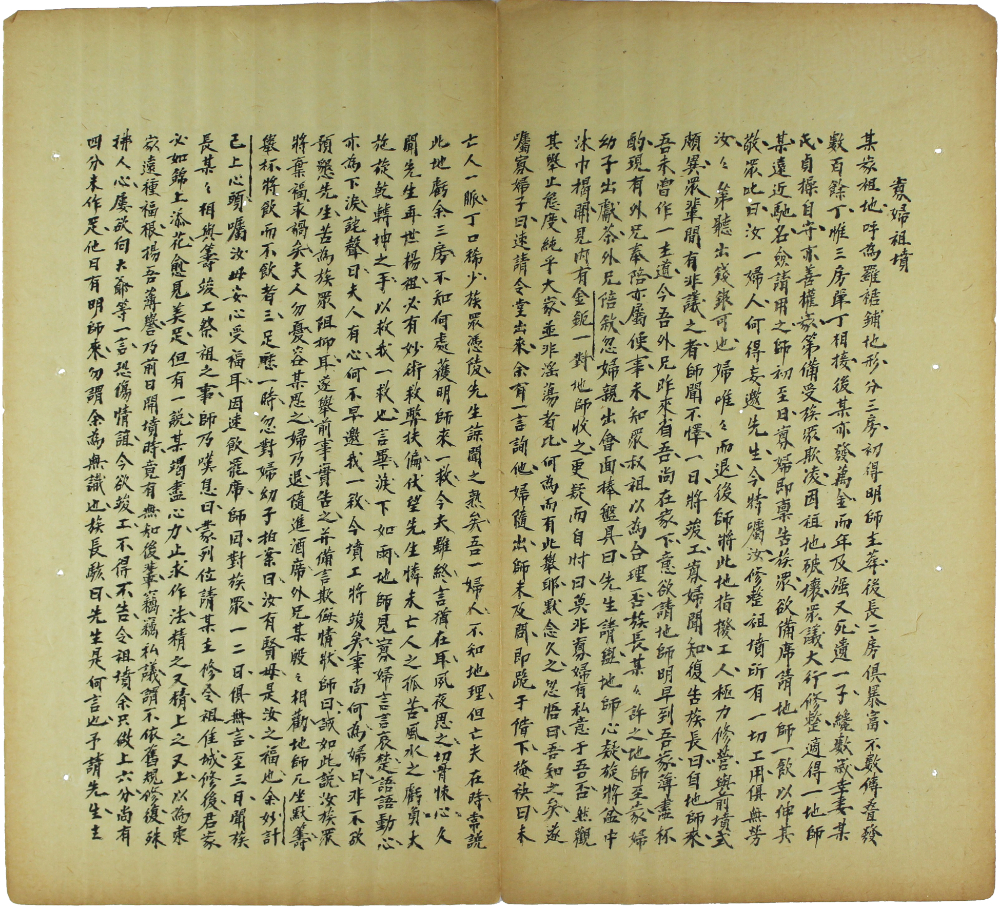 寡婦祖墳
某家祖地呼為羅裙鋪地形分三房初得明師主葬後長二房俱暴富不數傳登發
數百餘丁惟三房單丁相接後某亦發萬金而年及强又死遺一子纔數歲幸妻某
氏貞操自守亦善權家第備受族眾欺凌因祖地破壞眾議大行修整適得一地師
某遠近馳名僉請用之師初至日寡婦即稟告族眾欲備席請地師一飲以伸其
敬眾比曰汝一婦人何得妄邀先生今特囑汝修整祖墳所有一切工用俱無勞
汝々第聽出錢銀可也婦唯々而退後師將此地指撥工人極力修營與前墳式
頗異眾輩間有非議之者師聞不懌一日將竣工寡婦聞知復告族長曰自地師來
吾未曾作一主道今吾外兄昨來省吾尚在家下意欲請地師明早到吾家薄盡杯
酌現有外兄奉陪亦屬便事未知眾叔祖以為合理否族長某々許之地師至寡婦
幼子出獻茶外兄陪敘忽婦親出會面捧盥具曰先生請盥地師心款旋將盆中
沐巾榻開見內有金鈪一對地師收之更疑而自忖曰莫非寡婦有私意于吾否然觀
其舉止態度純乎大家並非淫蕩者比何為而有此舉耶默念久之忽悟曰吾知之矣遂
囑寡婦子曰速請令堂出來余有一言詢他婦隨出師未及問即跪于階下掩袂曰未
亡人一脈丁口稀少族眾憑陵先生諒聞之熟矣吾一婦人不知地理但亡夫在時常說
此地虧余三房不知何處獲明師來一救今夫雖終言猶在耳夙夜思之切骨悚心久
聞先生再世楊祖必有妙術救弊扶偏伏望先生憐未亡人之孤苦風水之虧負大
施旋乾轉坤之手以救我一救也言畢淚下如雨地師見寡婦言言哀楚語語動心
亦為下淚詫聲曰夫人有心何不早邀我一敘今墳工將竣矣事尚何為婦曰非不欲
預懇先生苦為族眾阻抑耳遂舉前事實告之并備言欺侮情狀師曰誠如此說汝族眾
將棄福求禍矣夫人勿憂容某思之婦乃退隨進酒席外兄某殷々相勸地師兀坐默籌
舉杯將飲而不飲者三足歷一時忽對婦幼子拍案曰汝有賢母是汝之福也余妙計
已上心頭囑汝母安心受福耳因速飲罷席師回對族眾一二日俱無言至三日聞族
長某々相與籌竣工祭祖之事師乃嘆息曰蒙列位請某主修令祖佳城修後君家
必如錦上添花愈見美足但有一說某竭盡心力止求作法精之又精上之又上以為東
家遠種福根揚吾薄譽乃前日開墳時竟有無知後輩竊竊私議謂不依舊規修復殊
拂人心屢欲向大爺等一言恐傷情誼今欲竣工不得不告令祖墳余只做上六分尚有
四分未作足他日有明師來勿謂余為無識也族長駭曰先生是何言也予請先生主